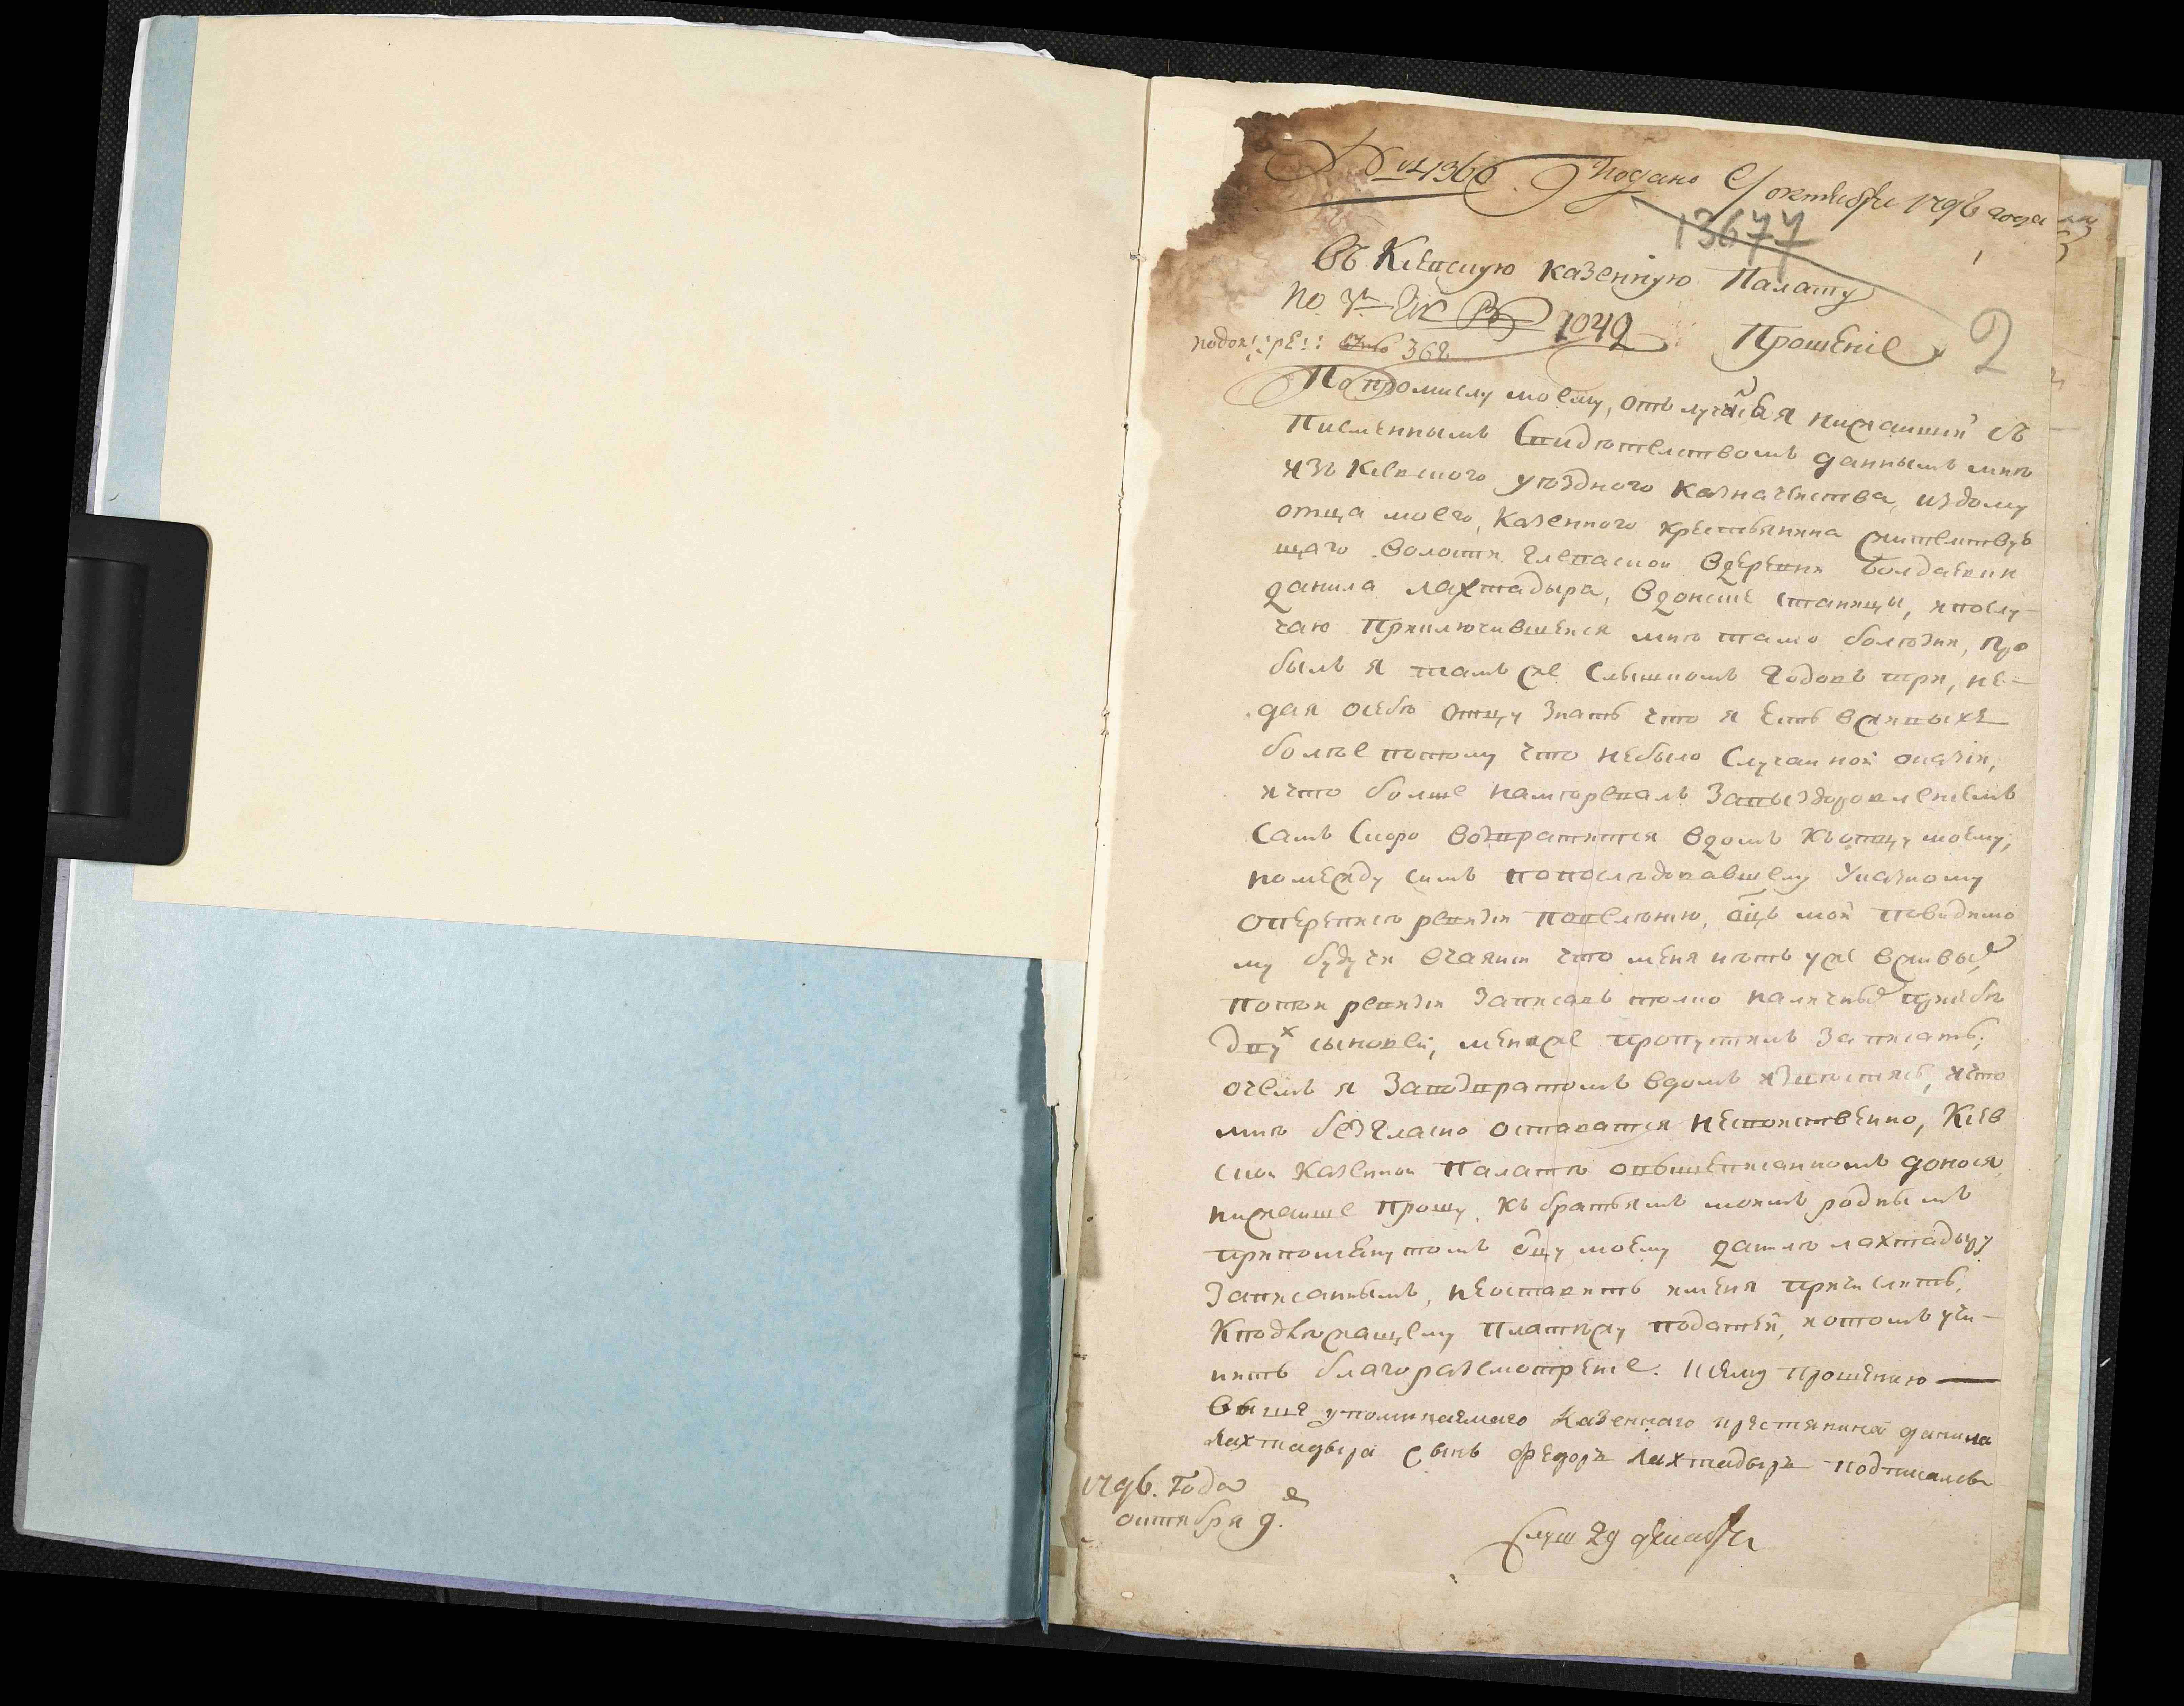 № 14360 Подано 9 октября 1796 года
13677
Въ Киевскую казенную Палату
по 1042
2
368 Прошение
По промислу моему, отлучась я нижайший съ
писменнымъ свидетелствомъ даннымъ мнѣ
изъ Киевского уѣздного казначейства, из дому
отца моего, казенного крестьянина жителствую
щаго волости Глеваской в деревни Болдаевки
Данила Лахтадыра, в донские станицы, и по слу-
чаю приключившейся мнѣ тамо болѣзни, про
былъ я тамъ же слышкомъ годовъ три, не-
дая о себѣ отцу знать что я есть в живыхъ
более потому что небыло случайной оказіи,
и что болше намѣревалъ за выздоровленіемъ
самъ скоро возвратится в домъ къ отцу моему,
но между симъ по послѣдовавшему указному
о перепись ревизіи повелѣнию, оцъ мой повидимо
му будучи в чаянии что меня нѣтъ уже в живыхъ
по той ревизіи записавъ толко наличныхъ при себѣ
двухъ сыновей, меня же пропустилъ записать,
о чемъ я за возвратомъ в домъ извѣстясь, и что
мнѣ безгласно оставатся несвойственно, Киев
ской казенной палатѣ о вышеписанномъ донося
нижайше прошу, къ братьямъ моимъ роднымъ
при помянутомъ оцу моему Данилѣ Лахтадыру
записаннымъ, неоставить и меня причислить
к подлежащему платежу податей, и о томъ учи-
нить благоразсмотрение. К сему прошению
выше упоминаемаго казеннаго крестянина данила
Лахтадыра сынъ Федоръ Лахтадыръ подписалсь
1796. Года
октября 9.
Слуш 29 декабря